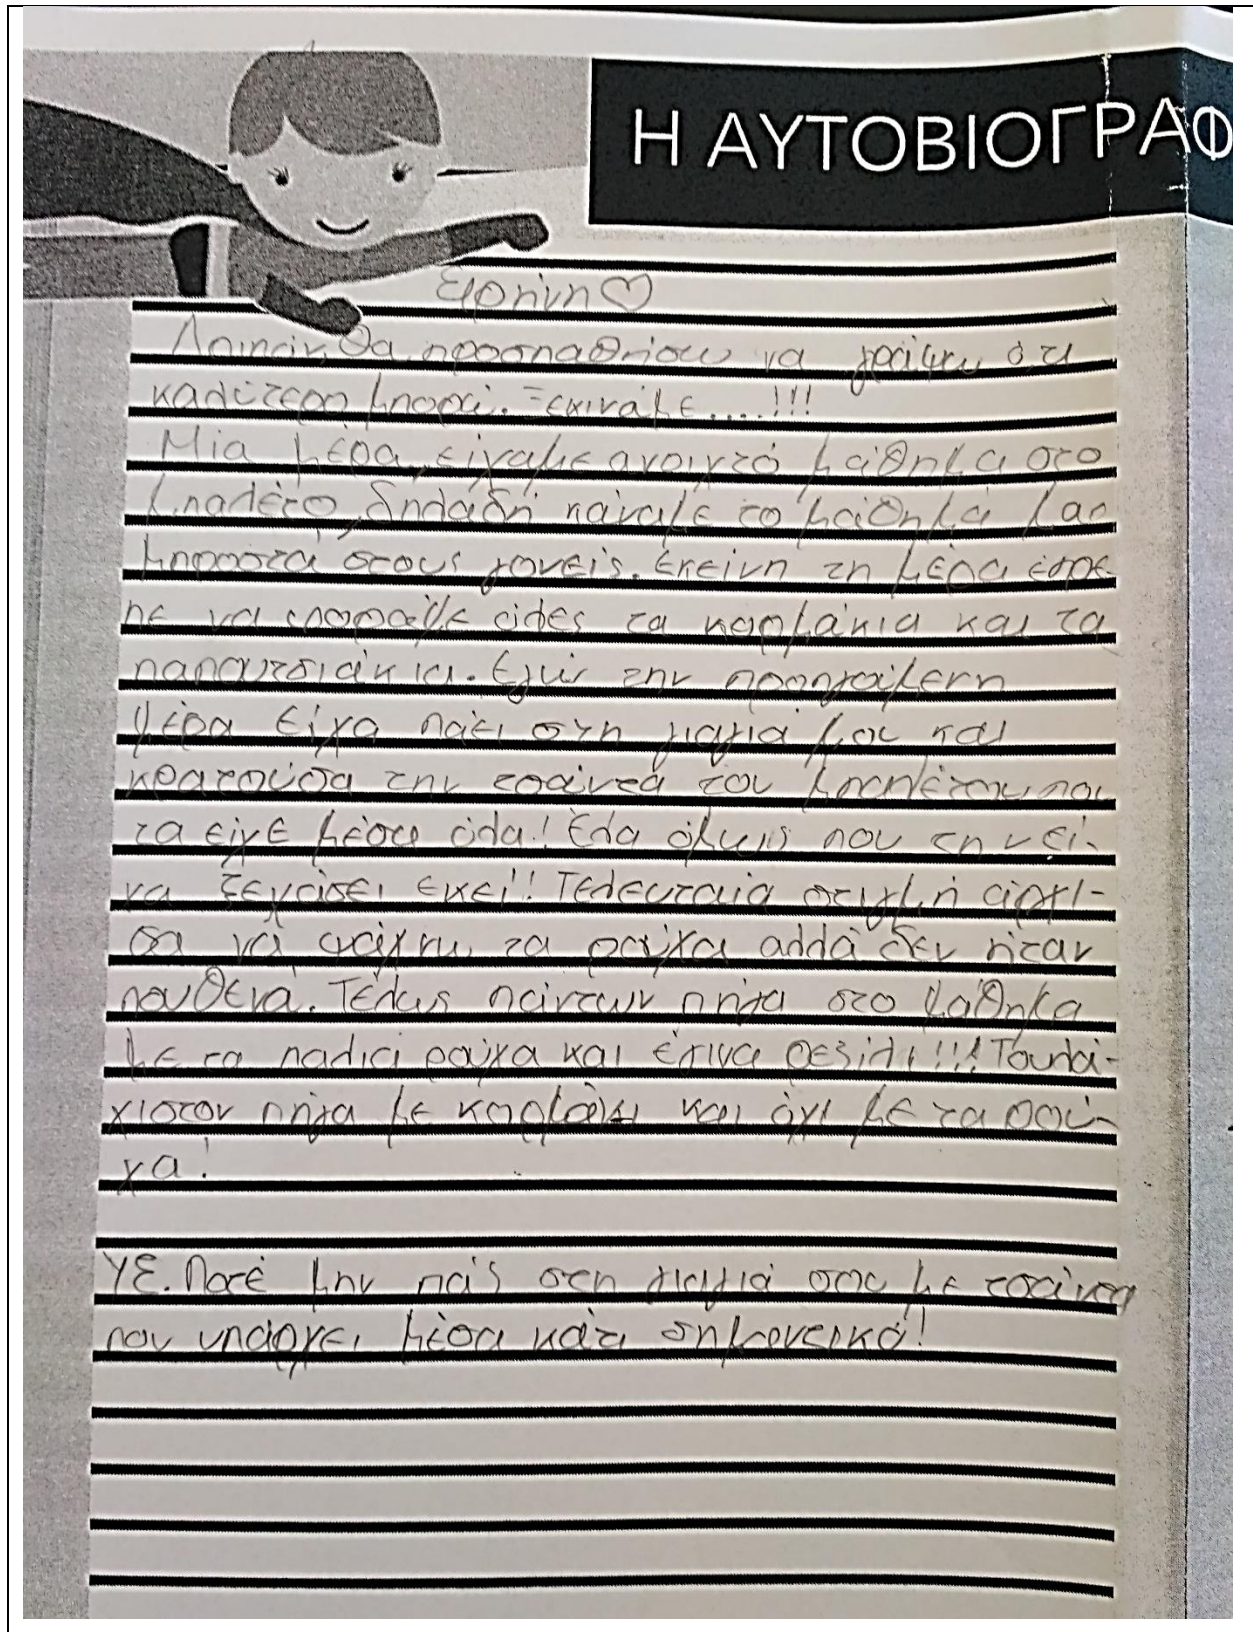 Η ΑΥΤΟΒΙΟΓΡΑΦ
Ειρήνη♡
Λοιπόν, θα προσπαθήσω να γράψω ό,τι
καλύτερο μπορώ. Ξεκινάμε....!!!
Μία μέρα, είχαμε ανοιχτό μάθημα στο
μπαλέτο, δηλαδή κάναμε το μάθημά μας
μπροστά στους γονείς. Εκείνη τη μέρα έπρε
πε να φοράμε όλες τα κορμάκια και τα
παπουτσιάκια. Εγώ την προηγούμενη
μέρα είχα πάει στη γιαγιά μου και
κρατούσα την τσάντα του μπαλέτου που
τα είχε μέσα όλα! Έλα όμως που την εί-
χα ξεχάσει εκεί!! Τελευταία στιγμή άρχι-
σα να ψάχνω τα ρούχα αλλά δεν ήταν
πουθενά. Τέλως πάντων πήγα στο μάθημα
με τα παλιά ρούχα και έγινα ρεζίλι!!! Τουλά-
χιστον πήγα με κορμάκι και όχι με τα ρού-
χα!
ΥΣ. Ποτέ μην πάς στη γιαγιά σας με τσάντα
που υπάρχει μέσα κάτι σημαντικό!